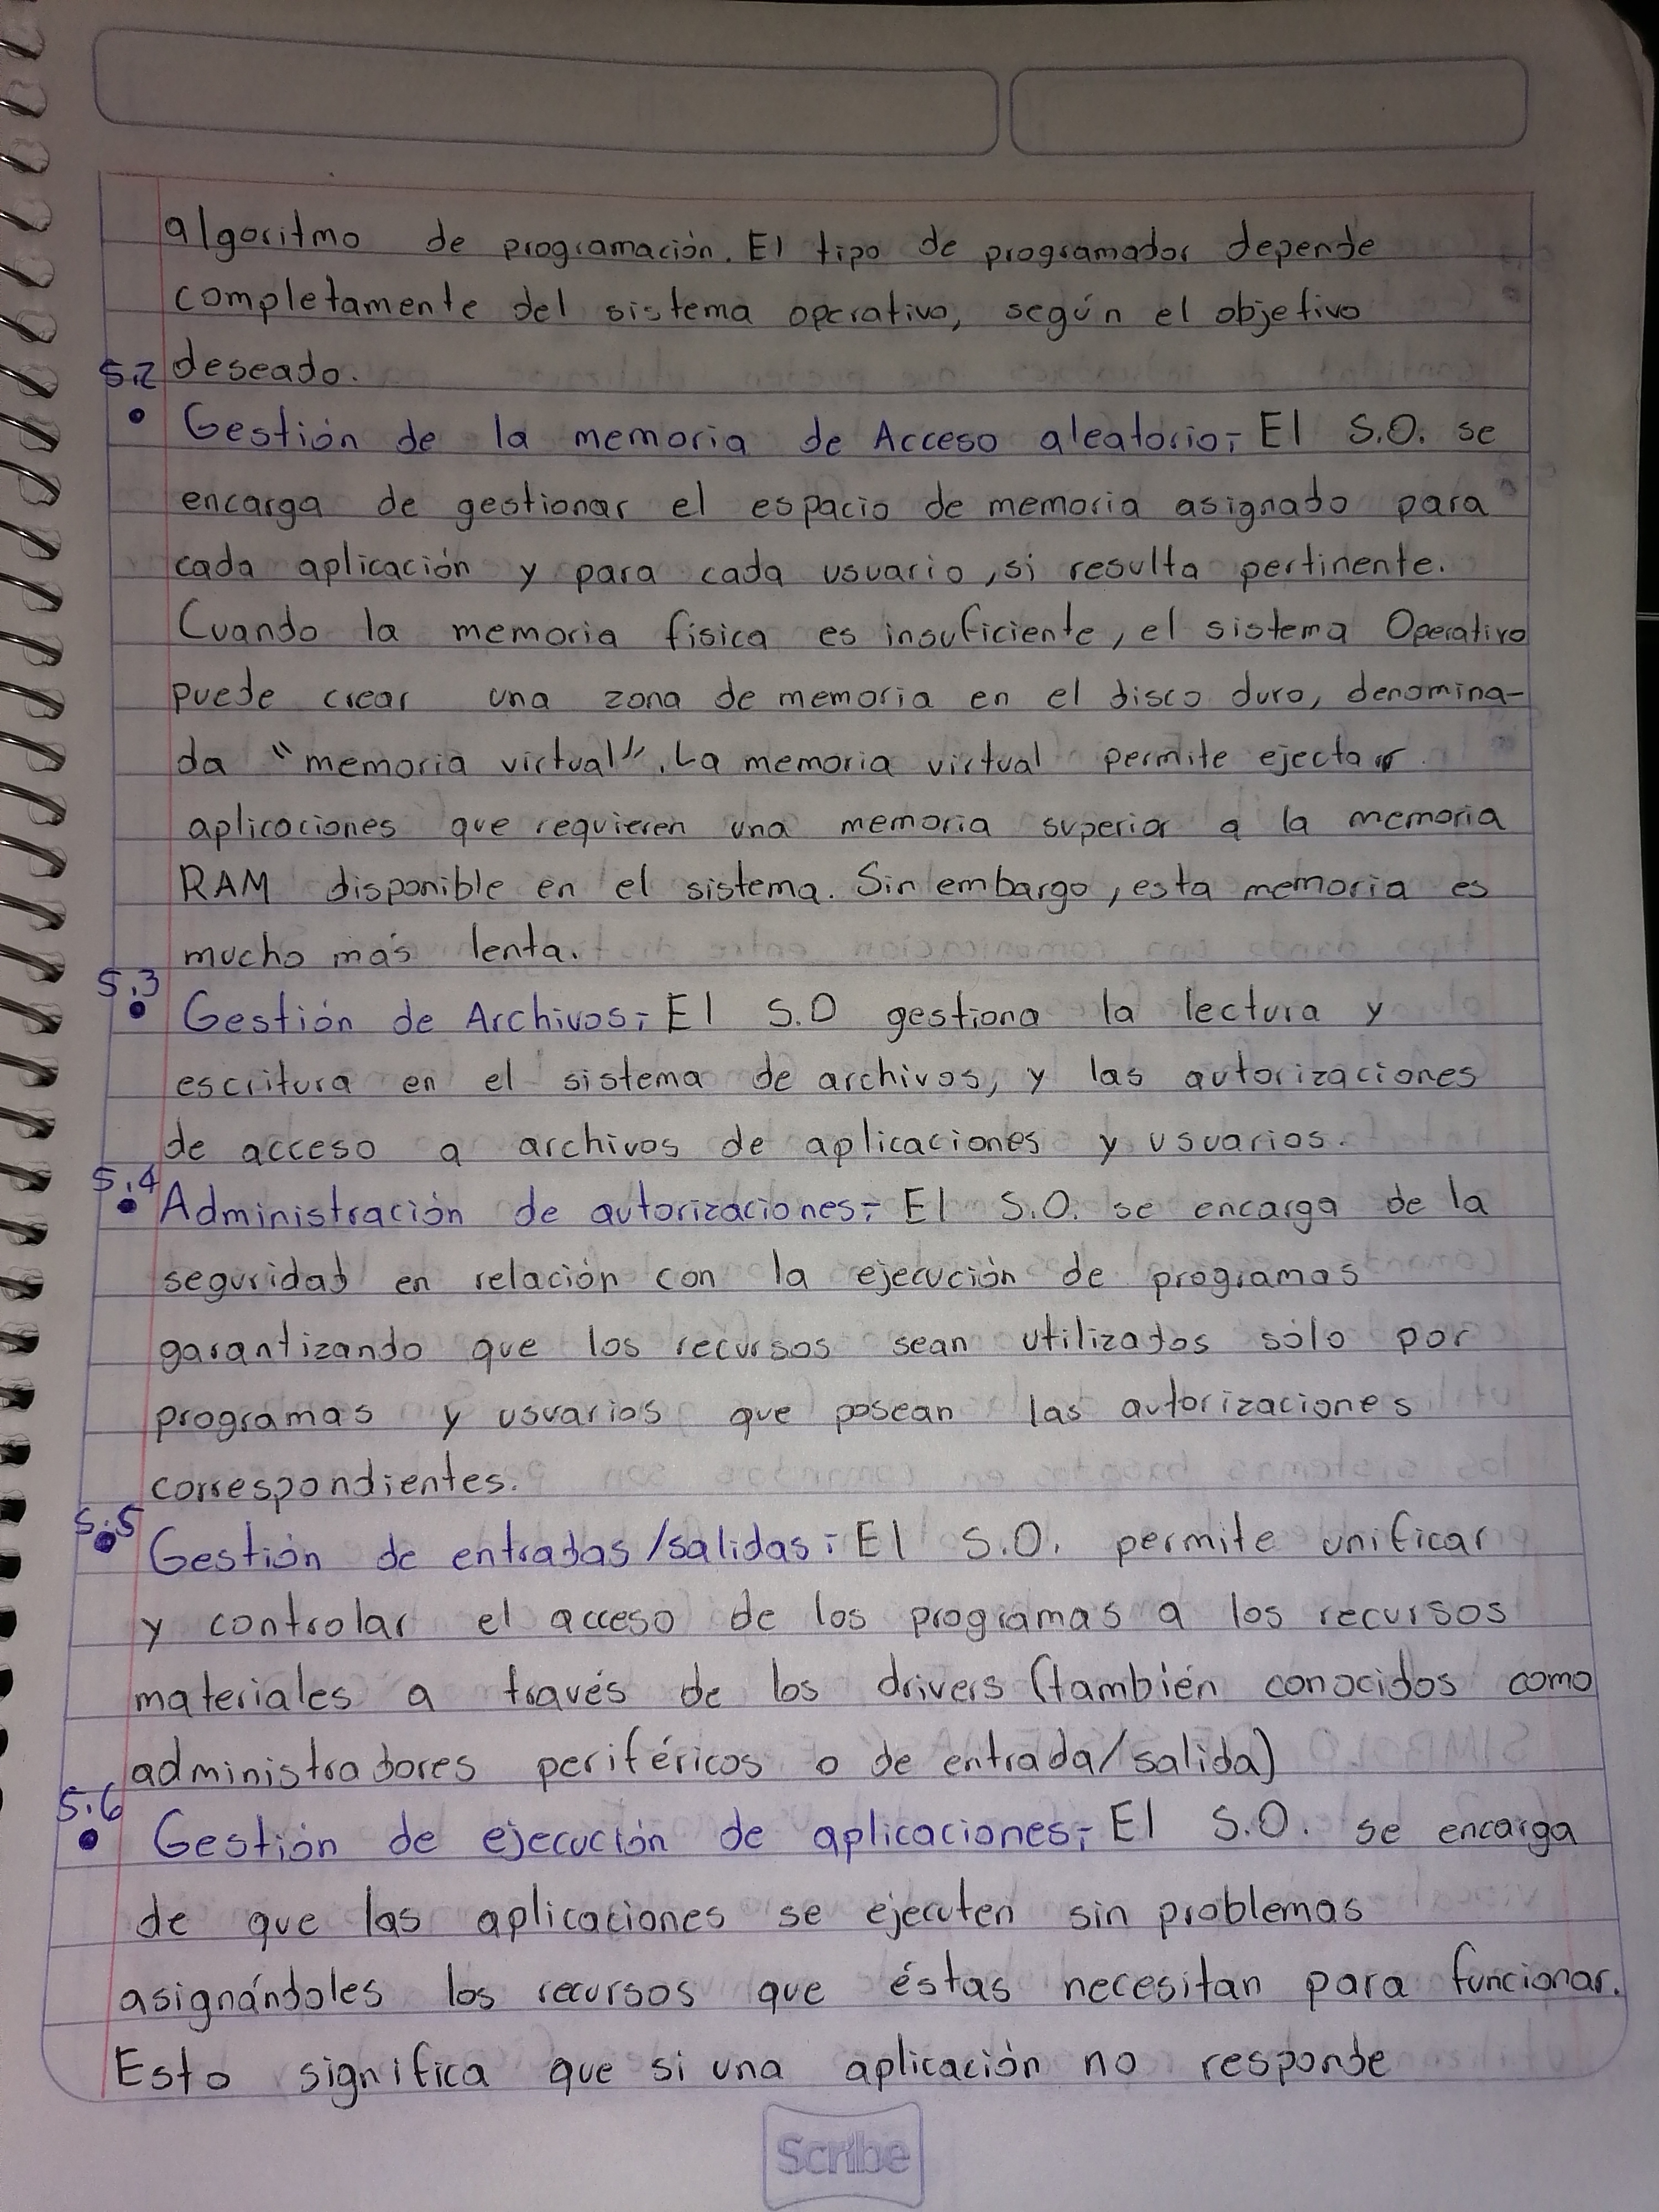 algoritmo de programación. El tipo de programador depende
completamente del sistema operativo, según el objetivo
5.2 deseado.
• Gestión de la memoria de Acceso aleatorio; El S.O. se
encarga de gestionar el espacio de memoria asignado para
cada aplicación y para cada usuario, si resulta pertinente.
Cuando la memoria física es insuficiente, el sistema Operativo
puede crear una zona de memoria en el disco duro, denomina-
da "memoria virtual". La memoria virtual permite ejectar
aplicaciones que requieren una memoria superior a la memoria
RAM disponible en el sistema. Sin embargo, esta memoria es
mucho más lenta.
5.3
• Gestión de Archivos; El S.O gestiona la lectura y
escritura en el sistema de archivos, y las autorizaciones
de acceso a archivos de aplicaciones y usuarios.
5.4
• Administración de autorizaciones; El S.O. se encarga de la
seguridad en relación con la ejecución de programas
garantizando que los recursos sean utilizados sólo por
programas y usuarios que posean las autorizaciones
correspondientes.
5.5
• Gestión de entradas/salidas: El S.O. permite unificar
y controlar el acceso de los programas a los recursos
materiales a través de los drivers (también conocidos como
administradores periféricos o de entrada/salida)
5.6
• Gestión de ejecución de aplicaciones; El S.O. se encarga
de que las aplicaciones se ejecuten sin problemas
asignándoles los recursos que éstas necesitan para funcionar.
Esto significa que si una aplicación no responde
Scribe